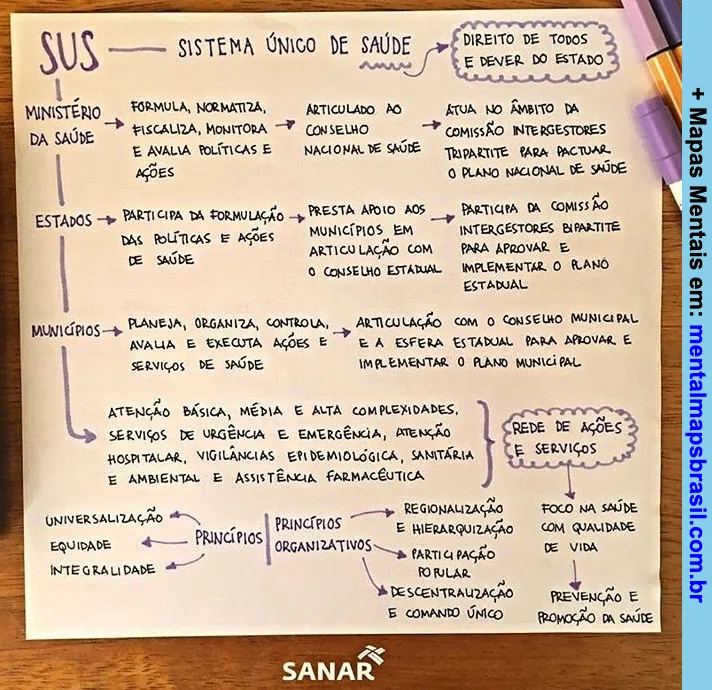 SUS — SISTEMA ÚNICO DE SAÚDE
DIREITO DE TODOS
E DEVER DO ESTADO
MINISTÉRIO
DA SAÚDE
FORMULA, NORMATIZA,
FISCALIZA, MONITORA
E AVALIA POLÍTICAS E
AÇÕES
ARTICULADO AO
CONSELHO
NACIONAL DE SAÚDE
ATUA NO ÂMBITO DA
COMISSÃO INTERGESTORES
TRIPARTITE PARA PACTUAR
O PLANO NACIONAL DE SAÚDE
ESTADOS
PARTICIPA DA FORMULAÇÃO
DAS POLÍTICAS E AÇÕES
DE SAÚDE
PRESTA APOIO AOS
MUNICÍPIOS EM
ARTICULAÇÃO COM
O CONSELHO ESTADUAL
PARTICIPA DA COMISSÃO
INTERGESTORES BIPARTITE
PARA APROVAR E
IMPLEMENTAR O PLANO
ESTADUAL
MUNICÍPIOS
PLANEJA, ORGANIZA, CONTROLA,
AVALIA E EXECUTA AÇÕES E
SERVIÇOS DE SAÚDE
ARTICULAÇÃO COM O CONSELHO MUNICIPAL
E A ESFERA ESTADUAL PARA APROVAR E
IMPLEMENTAR O PLANO MUNICIPAL
ATENÇÃO BÁSICA, MÉDIA E ALTA COMPLEXIDADES,
SERVIÇOS DE URGÊNCIA E EMERGÊNCIA, ATENÇÃO
HOSPITALAR, VIGILÂNCIAS EPIDEMIOLÓGICA, SANITÁRIA
E AMBIENTAL E ASSISTÊNCIA FARMACÊUTICA
REDE DE AÇÕES
E SERVIÇOS
FOCO NA SAÚDE
COM QUALIDADE
DE VIDA
PREVENÇÃO E
PROMOÇÃO DA SAÚDE
UNIVERSALIZAÇÃO
EQUIDADE
INTEGRALIDADE
PRINCÍPIOS
PRINCÍPIOS
ORGANIZATIVOS
REGIONALIZAÇÃO
E HIERARQUIZAÇÃO
PARTICIPAÇÃO
POPULAR
DESCENTRALIZAÇÃO
E COMANDO ÚNICO
SANAR
+ Mapas Mentais em: mentalmapsbrasil.com.br